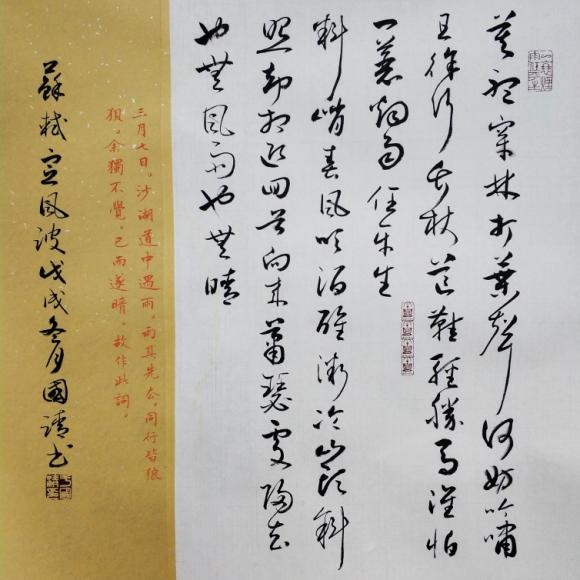 莫聽穿林打葉聲何妨吟嘯
且徐行竹杖芒鞋輕勝馬誰怕
一蓑煙雨任平生
料峭春風吹酒醒微冷山頭斜
照却相迎回首向來蕭瑟處歸去
也無風雨也無晴
三月七日。沙湖道中遇雨。雨具先去。同行皆狼
狽。余獨不覺。已而遂晴。故作此詞。
蘇軾定風波戊戌冬月國靖书